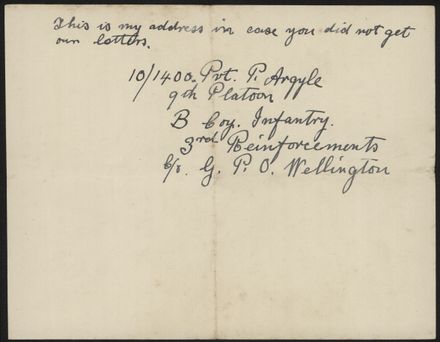 This is my address in case you did not get
our letters.
10/1400. Pvt. P. Argyle
9th Platoon
B Coy. Infantry.
3rd Reinforcements
C/o. G. P. O. Wellington